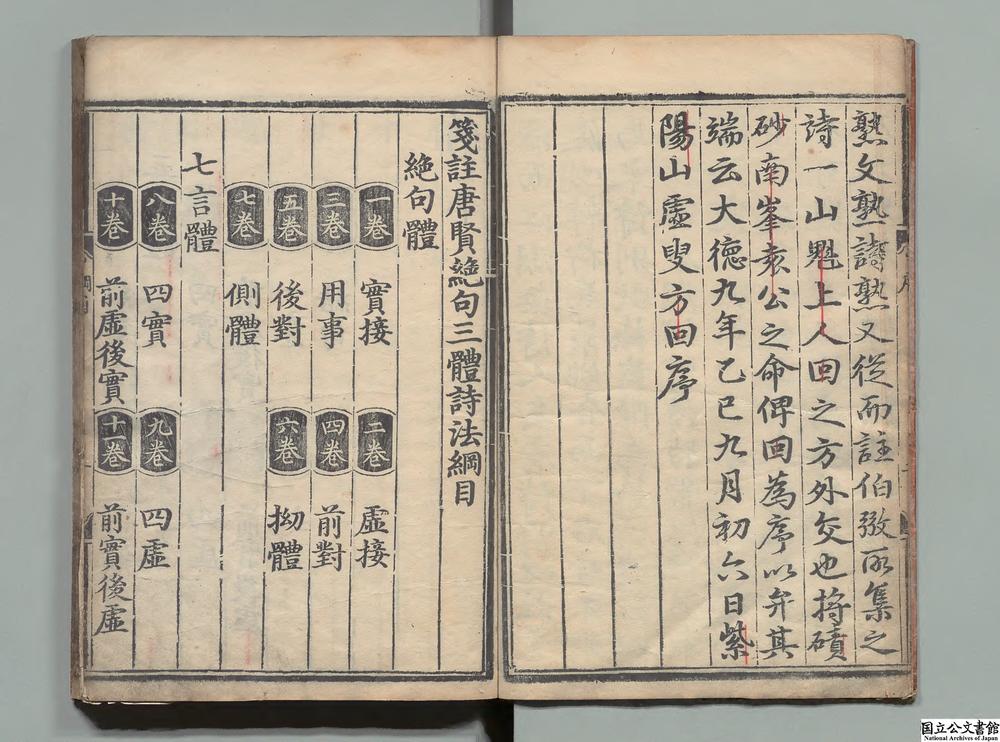 熟文熟詩熟又從而註伯弜所集之
詩一山魁上人回之方外交也將磧
砂南峯袁公之命俾回為序以弁其
端云大德九年乙巳九月初六日紫
陽山虛叟方回序
箋註唐賢絶句三體詩法綱目
絶句體
一卷 實接 二卷 虛接
三卷 用事 四卷 前對
五卷 後對 六卷 拗體
七卷 側體
七言體
八卷 四實 九卷 四虛
十卷 前虛後實 十一卷 前實後虛
国立公文書館
National Archives of Japan